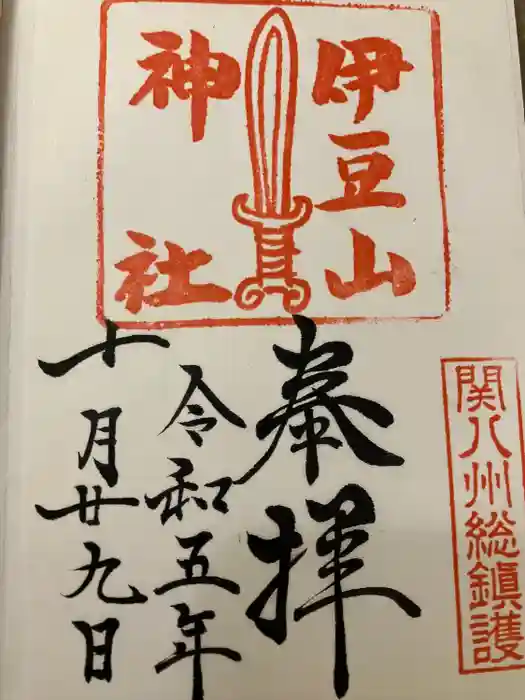 伊豆山
神社
関八州総鎮護
奉拝
令和五年
十月廿九日